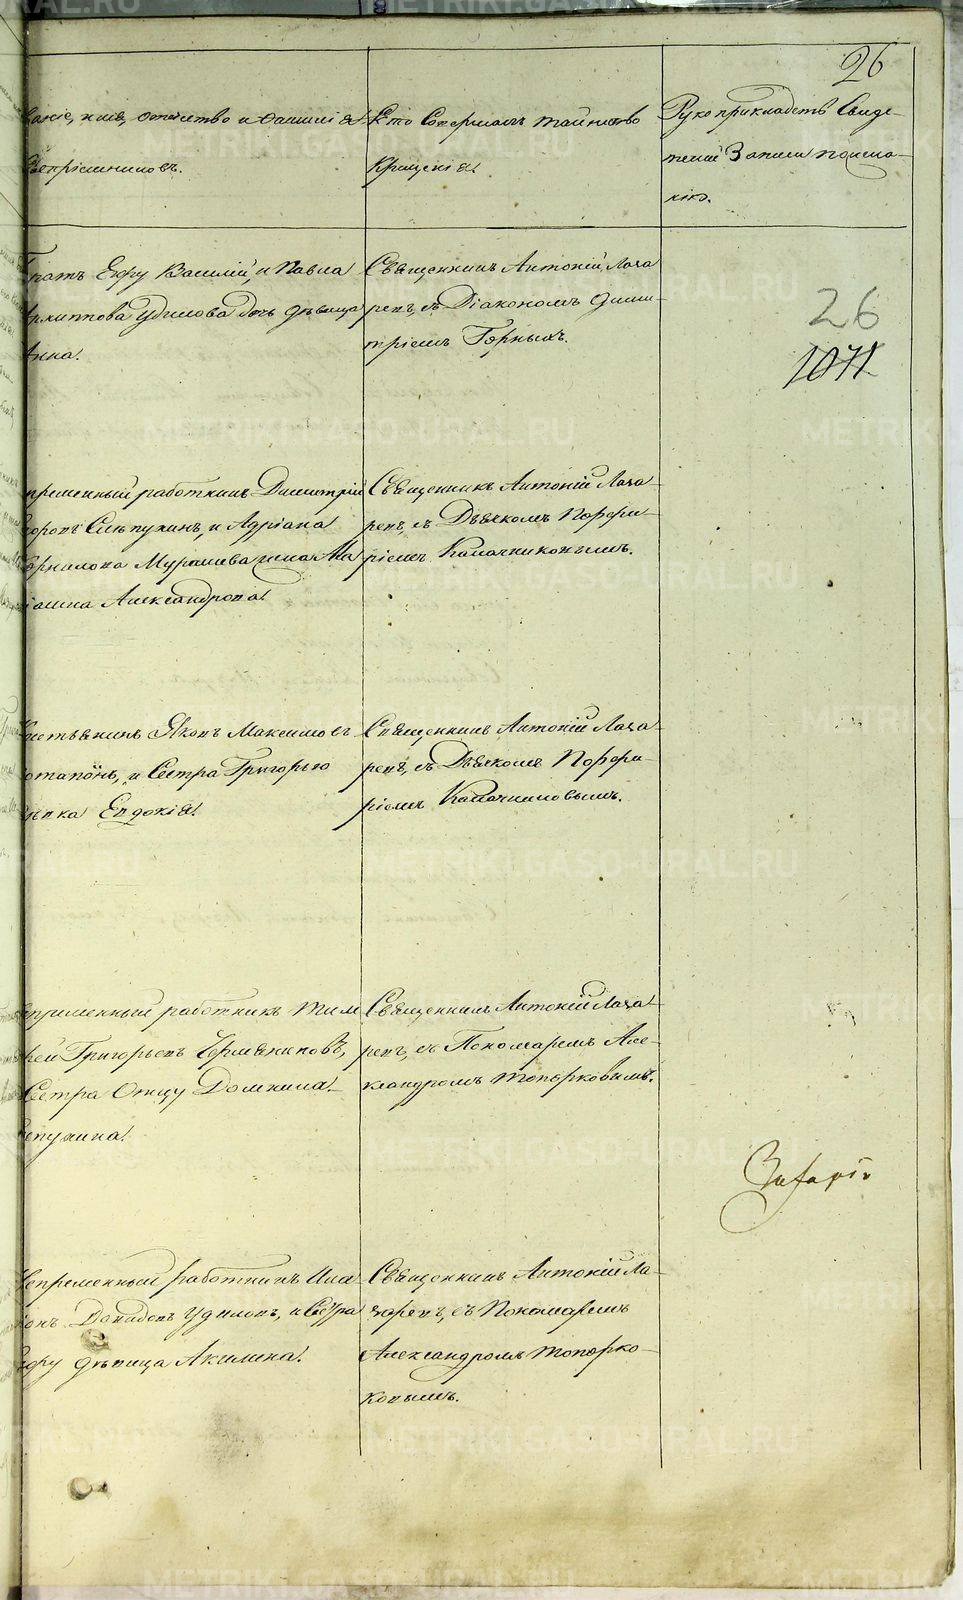 26
Званіе, имя, отечество и Фамилія
Воспріемниковъ.
Кто Совершалъ таинство
Крещенія.
Рукоприкладство Свиде-
телей Записи по жела-
нію.
Братъ Ефру Василій, и Павла
Архиппова Удилова дочь дѣвица
Анна.
Священникъ Антоній Лаза
ревъ, съ Діакономъ Дими-
тріемъ Горныхъ.
26
1071
непременный работникъ Димитрій
Слепухинъ, и Адріана
Корнилова Мурашева жена Ма
Александрова.
Священникъ Антоній Лаза-
ревъ, съ Дьячкомъ Порфи-
ріемъ Калачниковымъ.
Крестьянинъ Яковъ Максимовъ
Потаповъ, и Сестра Григорью
дѣвка Евдокія.
Священникъ Антоній Лаза-
ревъ, съ Дьячкомъ Порфи-
ріемъ Калачниковымъ.
непременный работникъ Тимо
фей Григорьевъ Чермяниновъ,
Сестра Отцу Домнина
Священникъ Антоній Лаза-
ревъ, съ Пономаремъ Але-
ксандромъ Топорковымъ.
непременный работникъ Ила
ріонъ Давыдовъ Удиловъ, и Сестра
дѣвица Акилина.
Священникъ Антоній Ла-
заревъ, съ Пономаремъ
Александромъ Топорко-
вымъ.